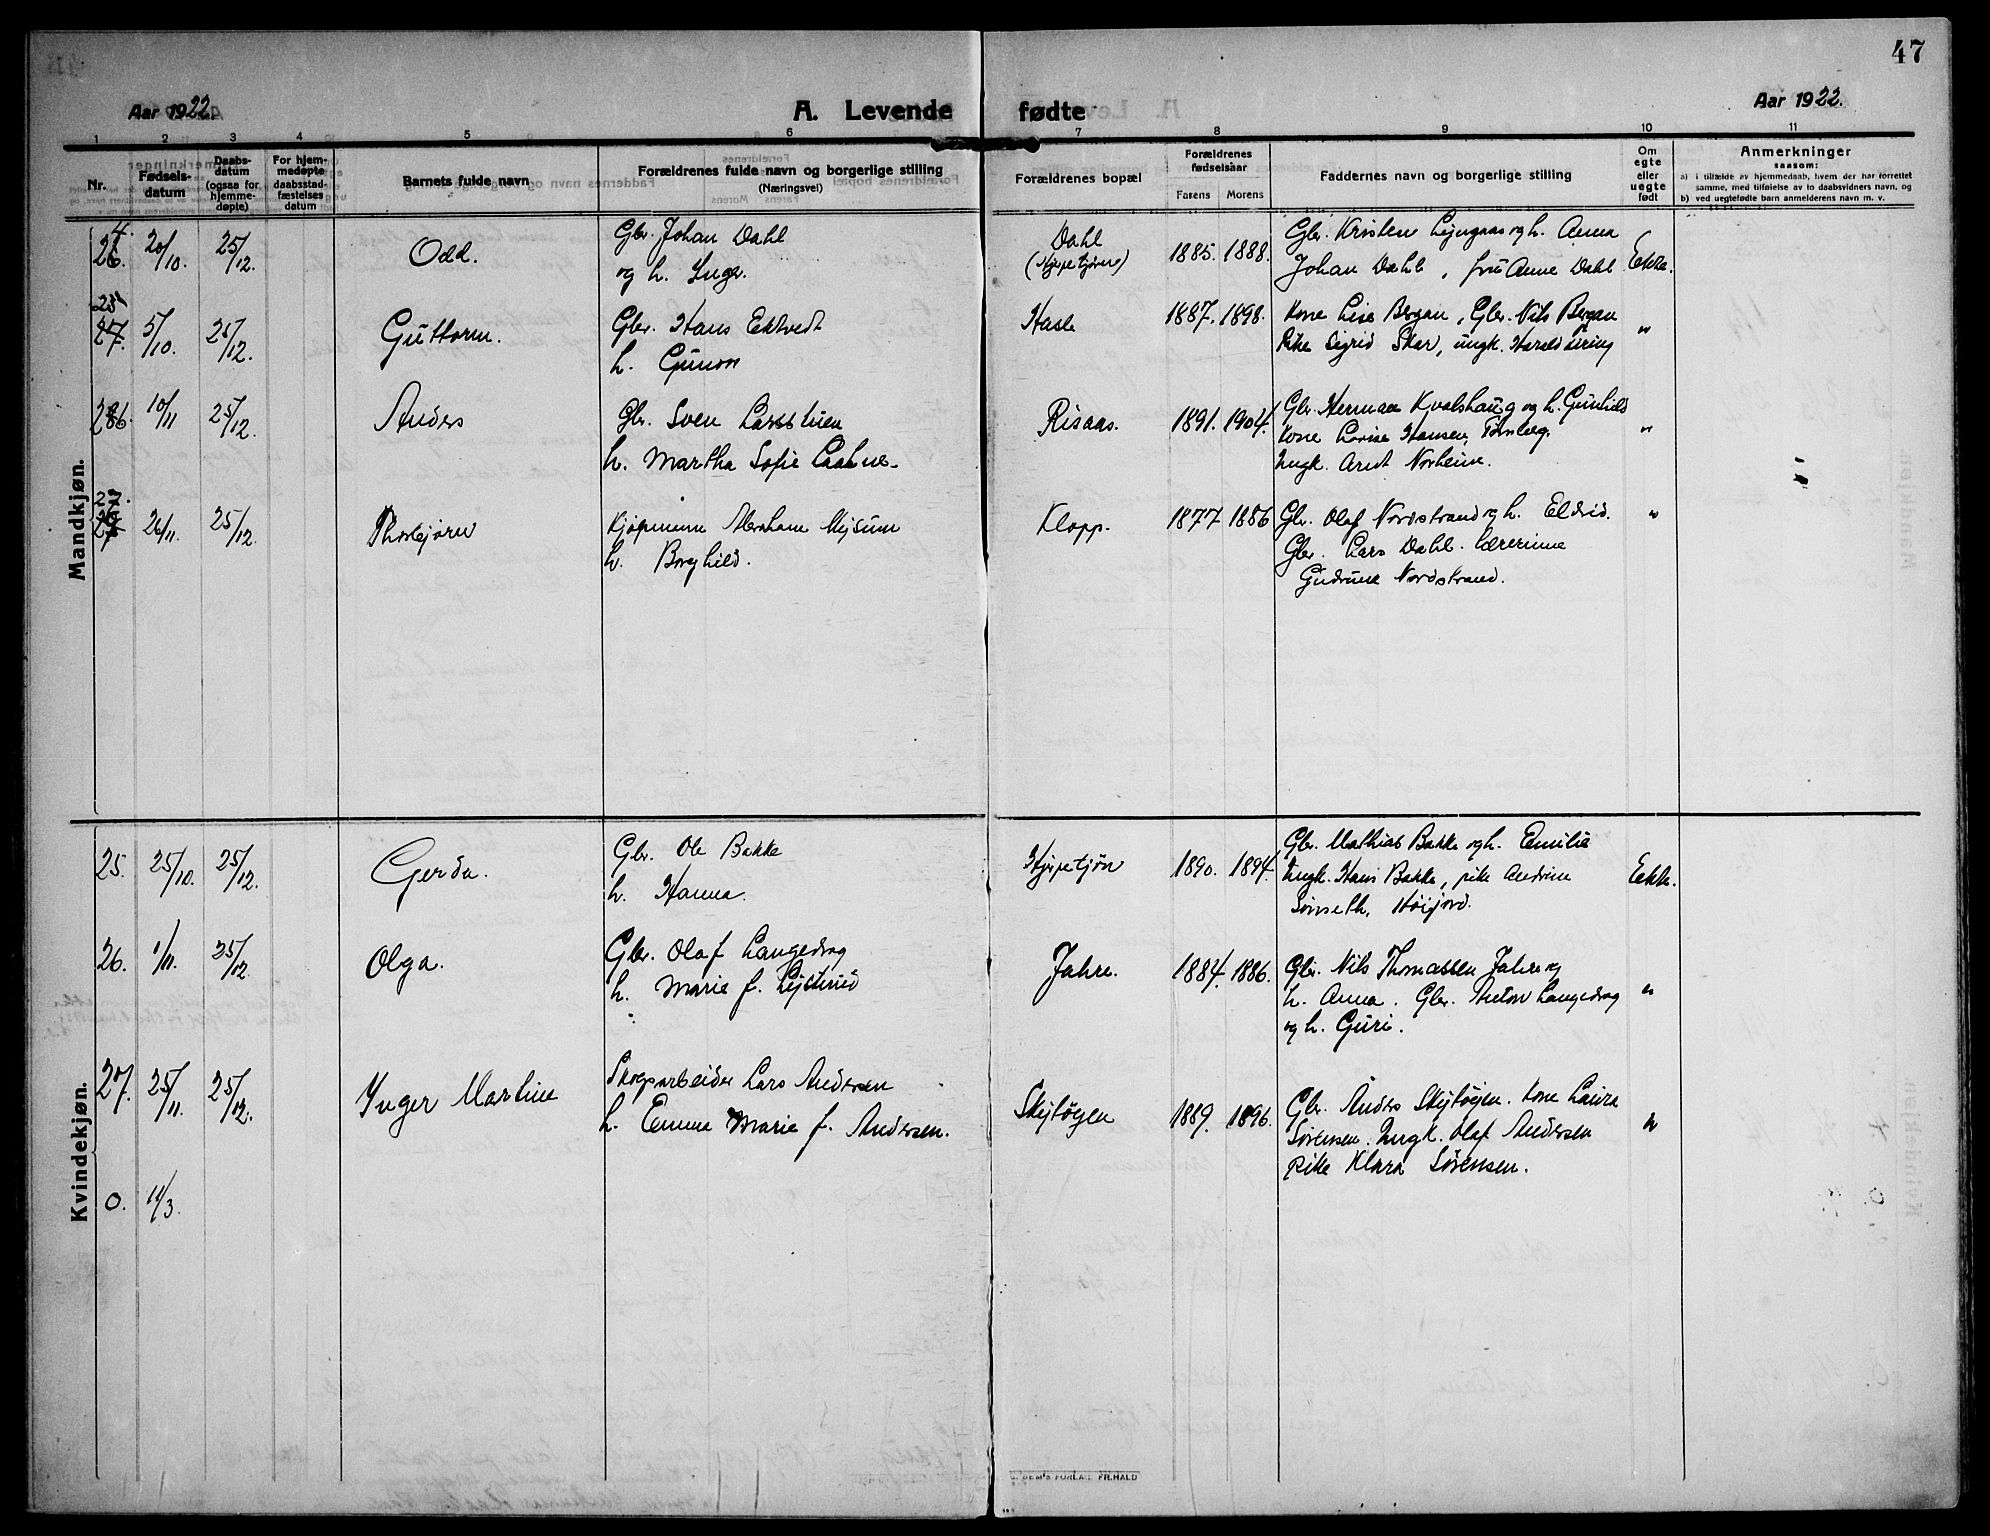 47
Aar 1922.
A. Levende fødte
Aar 1922.
1 2 3 4 5 6 7 8 9 10 11
Nr.
Fødsels-
datum
Daabs-
datum
(ogsaa for
hjemme-
døpte)
For hjem-
medøpte
daabsstad-
fæstelses
datum
Barnets fulde navn
Forældrenes fulde navn og borgerlige stilling
(Næringsvei)
Forældrenes bopæl
Forældrenes
fødselsaar
Farens Morens
Faddernes navn og borgerlige stilling
Om
egte
eller
uegte
født
Anmerkninger
saasom:
a) i tilfælde av hjemmedaab, hvem der har forrettet
samme, med tilføielse av to daabsvidners navn, og
b) ved uegtefødte barn anmelderens navn m. v.
Mandkjøn.
4.
26. 20/10. 25/12. Odd.
Gbr. Johan Dahl
og h. Inger.
Dahl
(Hjipetjønn)
1885. 1888.
Gbr. Kristen og h. Anna
Johan Dahl, frü Anne Dahl
Ekte.
25
27. 5/10. 25/12. Guttorm.
Gbr. Hans Ektvedt
h. Gunvor
Hasle
1887. 1898.
Kone Lise Bergan, Gbr. Nils Bergan
Pike Sigrid Skar, ungk. Harald
"
286. 10/11 25/12. Anders
Gbr. Sven Larsstuen
h. Martha Sofie
Risaas.
1891. 1904.
Gbr. Herman Kvalshaug og h. Gunhild
Kone Lovise Hansen, Tønsberg.
Ungk. Arnt Norheim.
"
27.
26/11. 25/12. Thorbjørn
Kjøpmann Abraham Mejsum
h. Borghild.
Klopp.
1877 1886
Gbr. Olaf Nordstrand og h. Eldrid.
Gbr. Lars Dahl. Lærerinne
Gudrune Nordstrand.
"
Kvindekjøn.
25. 25/10. 25/12. Gerda.
Gbr. Ole Bakke
h. Hanna.
Hjipetjøn
1890. 1894.
Gbr. Mathias Bakke og h. Emilie
Ungk. Hans Bakke, pike Andrine
Sønseth, Høijord.
Ekte.
26. 1/11. 25/12. Olga.
Gbr. Olaf Langedrag
h. Marie f.
Jahre.
1884. 1886.
Gbr. Nils Thomassen Jahre og
h. Anna. Gbr. Anton Langedrag
og h. Guri.
"
27. 25/11. 25/12. Inger Martine
Skogsarbeider Lars Andersen
h. Emma Marie f. Andersen.
Skejtøgen
1889. 1896.
Gbr. Anders Skejtøgen. Kone Laura
Sørensen. Ungk. Olaf Andersen
pike Klara Sørensen.
"
0. 11/3.
FORLAG. FR. HALD